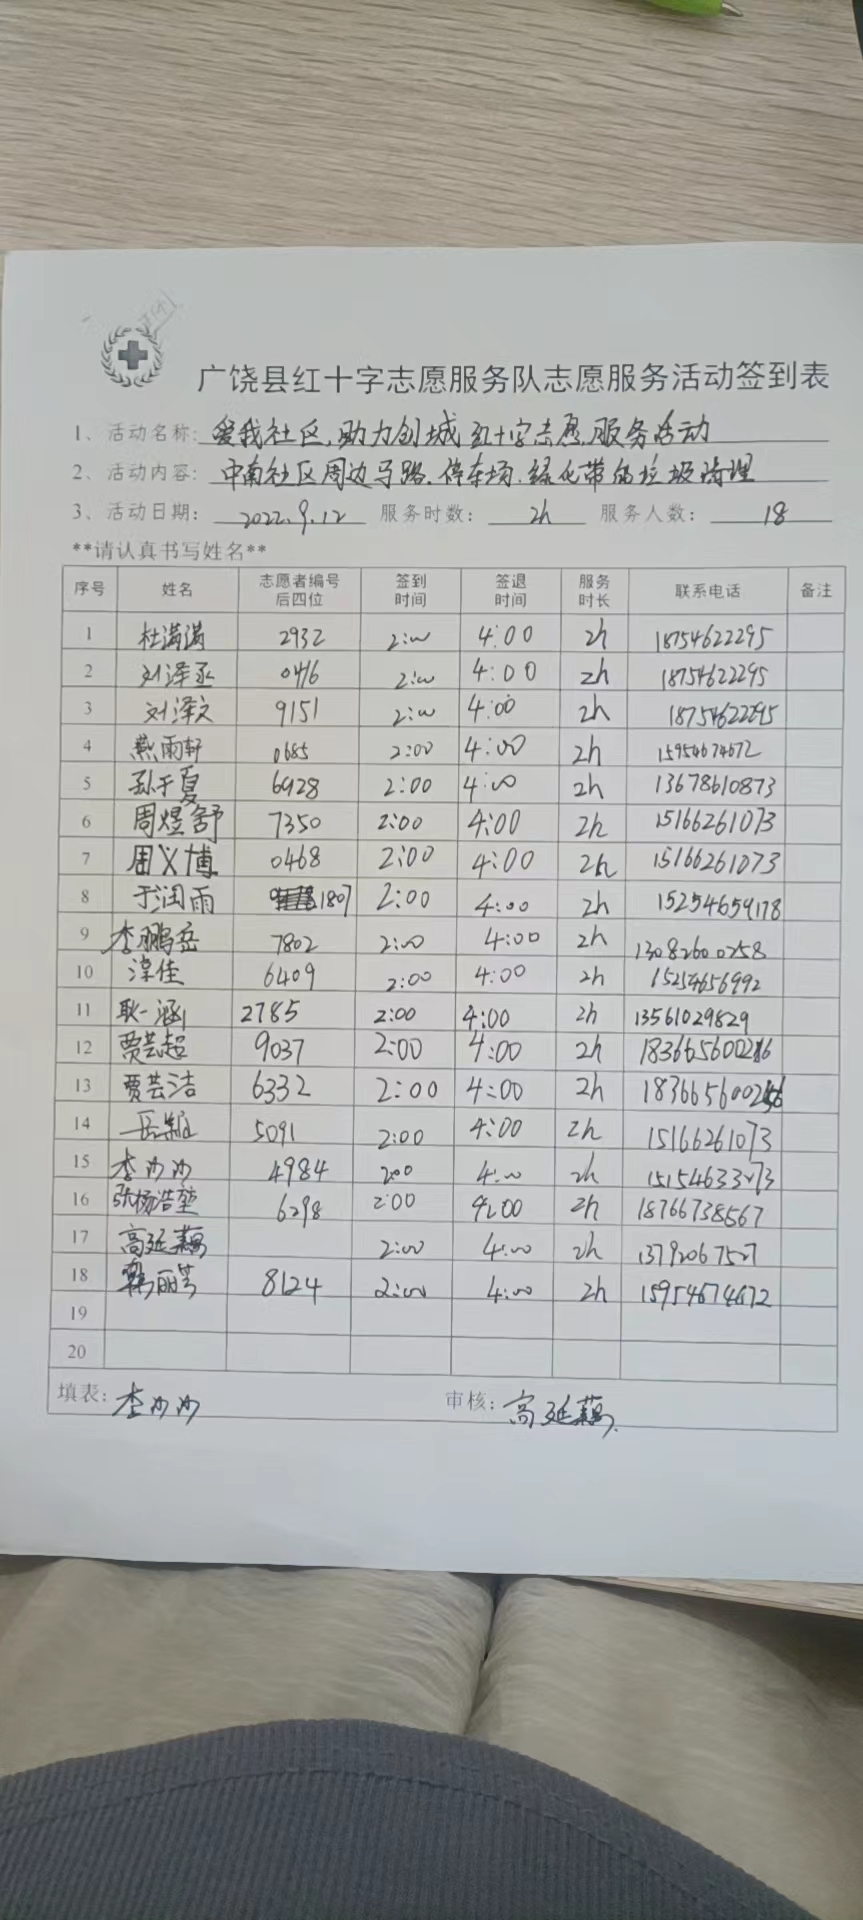 广饶县红十字志愿服务队志愿服务活动签到表
1、活动名称: 爱我社区,助力创城红十字志愿服务活动
2、活动内容: 中南社区周边马路、停车场、绿化带的垃圾清理
3、活动日期: 2022.9.12 服务时数: 2h 服务人数: 18
**请认真书写姓名**
序号 姓名 志愿者编号后四位 签到时间 签退时间 服务时长 联系电话 备注
1 杜满满 2932 2:00 4:00 2h 18754622295
2 刘泽丞 0416 2:00 4:00 2h 18754622295
3 刘泽文 9151 2:00 4:00 2h 18754622295
4 燕雨轩 0685 2:00 4:00 2h 15954674672
5 孙于夏 6928 2:00 4:00 2h 13678610873
6 周煜舒 7350 2:00 4:00 2h 15166261073
7 周义博 0468 2:00 4:00 2h 15166261073
8 于润雨 1807 2:00 4:00 2h 15254659178
9 李鹏岳 7802 2:00 4:00 2h 13082600258
10 淳佳 6409 2:00 4:00 2h 15254656992
11 耿一涵 2785 2:00 4:00 2h 13561029829
12 贾芸超 9037 2:00 4:00 2h
13 贾芸洁 6332 2:00 4:00 2h
14 5091 2:00 4:00 2h 15166261073
15 李沙沙 4984 2:00 4:00 2h
16 张杨浩堃 6298 2:00 4:00 2h 18766738567
17 高延藕 2:00 4:00 2h
18 8124 2:00 4:00 2h 15954674672
19
20
填表: 李沙沙 审核: 高延藕